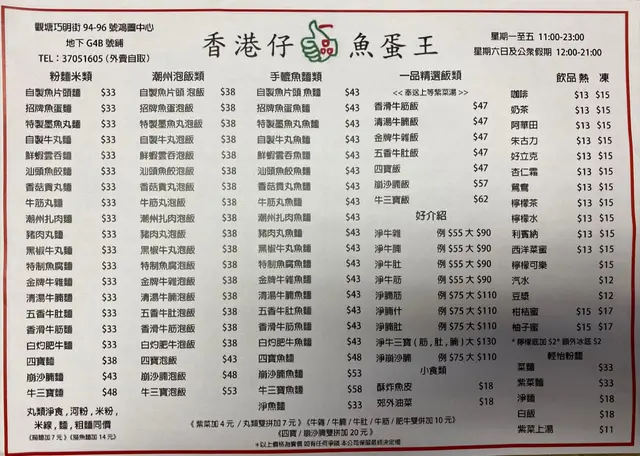 觀塘巧明街 94-96 號鴻圖中心
地下 G4B 號舖
TEL：37051605 (外賣自取)
香港仔 魚蛋王
星期一至五 11:00-23:00
星期六日及公眾假期 12:00-21:00
粉麵米類
自製魚片頭麵 $33
招牌魚蛋麵 $33
特製墨魚丸麵 $33
自製牛丸麵 $33
鮮蝦雲吞麵 $33
汕頭魚餃麵 $33
香菇貢丸麵 $33
牛筋丸麵 $33
潮州扎肉麵 $33
豬肉丸麵 $33
黑椒牛丸麵 $33
特制魚腐麵 $33
金牌牛雜麵 $33
清湯牛腩麵 $33
五香牛肚麵 $33
香滑牛筋麵 $33
白灼肥牛麵 $33
四寶麵 $38
崩沙腩麵 $43
牛三寶麵 $48
丸類淨食 , 河粉 , 米粉 ,
米線 , 麵 , 粗麵同價
潮州泡飯類
自製魚片頭 泡飯 $38
招牌魚蛋泡飯 $38
特製墨魚丸泡飯 $38
自製牛丸泡飯 $38
鮮蝦雲吞泡飯 $38
汕頭魚餃泡飯 $38
香菇貢丸泡飯 $38
牛筋丸泡飯 $38
潮州扎肉泡飯 $38
豬肉丸泡飯 $38
黑椒牛丸泡飯 $38
特制魚腐泡飯 $38
金牌牛雜泡飯 $38
清湯牛腩泡飯 $38
五香牛肚泡飯 $38
香滑牛筋泡飯 $38
白灼肥牛泡飯 $38
四寶泡飯 $43
崩沙腩泡飯 $48
牛三寶泡飯 $53
手搥魚麵類
自製魚片頭 魚麵 $43
招牌魚蛋魚麵 $43
特製墨魚丸魚麵 $43
自製牛丸魚麵 $43
鮮蝦雲吞魚麵 $43
汕頭魚餃魚麵 $43
香菇貢丸魚麵 $43
牛筋丸魚麵 $43
潮州扎肉魚麵 $43
豬肉丸魚麵 $43
黑椒牛丸魚麵 $43
特制魚腐魚麵 $43
金牌牛雜魚麵 $43
清湯牛腩魚麵 $43
五香牛肚魚麵 $43
香滑牛筋魚麵 $43
白灼肥牛魚麵 $43
四寶魚麵 $48
崩沙腩魚麵 $53
牛三寶魚麵 $58
淨魚麵 $33
一品精選飯類
<< 奉送上等紫菜湯 >>
香滑牛筋飯 $47
清湯牛腩飯 $47
金牌牛雜飯 $47
五香牛肚飯 $47
四寶飯 $47
崩沙腩飯 $57
牛三寶飯 $62
好介紹
淨牛雜 例 $55 大 $90
淨牛腩 例 $55 大 $90
淨牛肚 例 $55 大 $90
淨牛筋 例 $55 大 $90
淨腩筋 例 $75 大 $110
淨腩什 例 $75 大 $110
淨腩肚 例 $75 大 $110
淨牛三寶 ( 筋 , 肚 , 腩 ) 大 $130
淨崩沙腩 例 $75 大 $110
小食類
酥炸魚皮 $18
郊外油菜 $18
飲品 熱 凍
咖啡 $13 $15
奶茶 $13 $15
阿華田 $13 $15
朱古力 $13 $15
好立克 $13 $15
杏仁霜 $13 $15
鴛鴦 $13 $15
檸檬茶 $13 $15
檸檬水 $13 $15
利賓納 $13 $15
西洋菜蜜 $13 $15
檸檬可樂 $15
汽水 $12
豆漿 $12
柑桔蜜 $15 $17
柚子蜜 $15 $17
* 檸檬底加 $2* 額外冰底 $2
輕怡粉麵
菜麵 $33
紫菜麵 $33
淨麵 $18
白飯 $18
紫菜上湯 $11
《 紫菜加 4 元 / 丸類雙拼加 7 元 》《 牛雜 / 牛腩 / 牛肚 / 牛筋 / 肥牛雙拼加 10 元 》
《 四寶 / 崩沙腩雙拼加 20 元 》
*以上價格為實價 如有任何爭議 本公司保留最終決定權